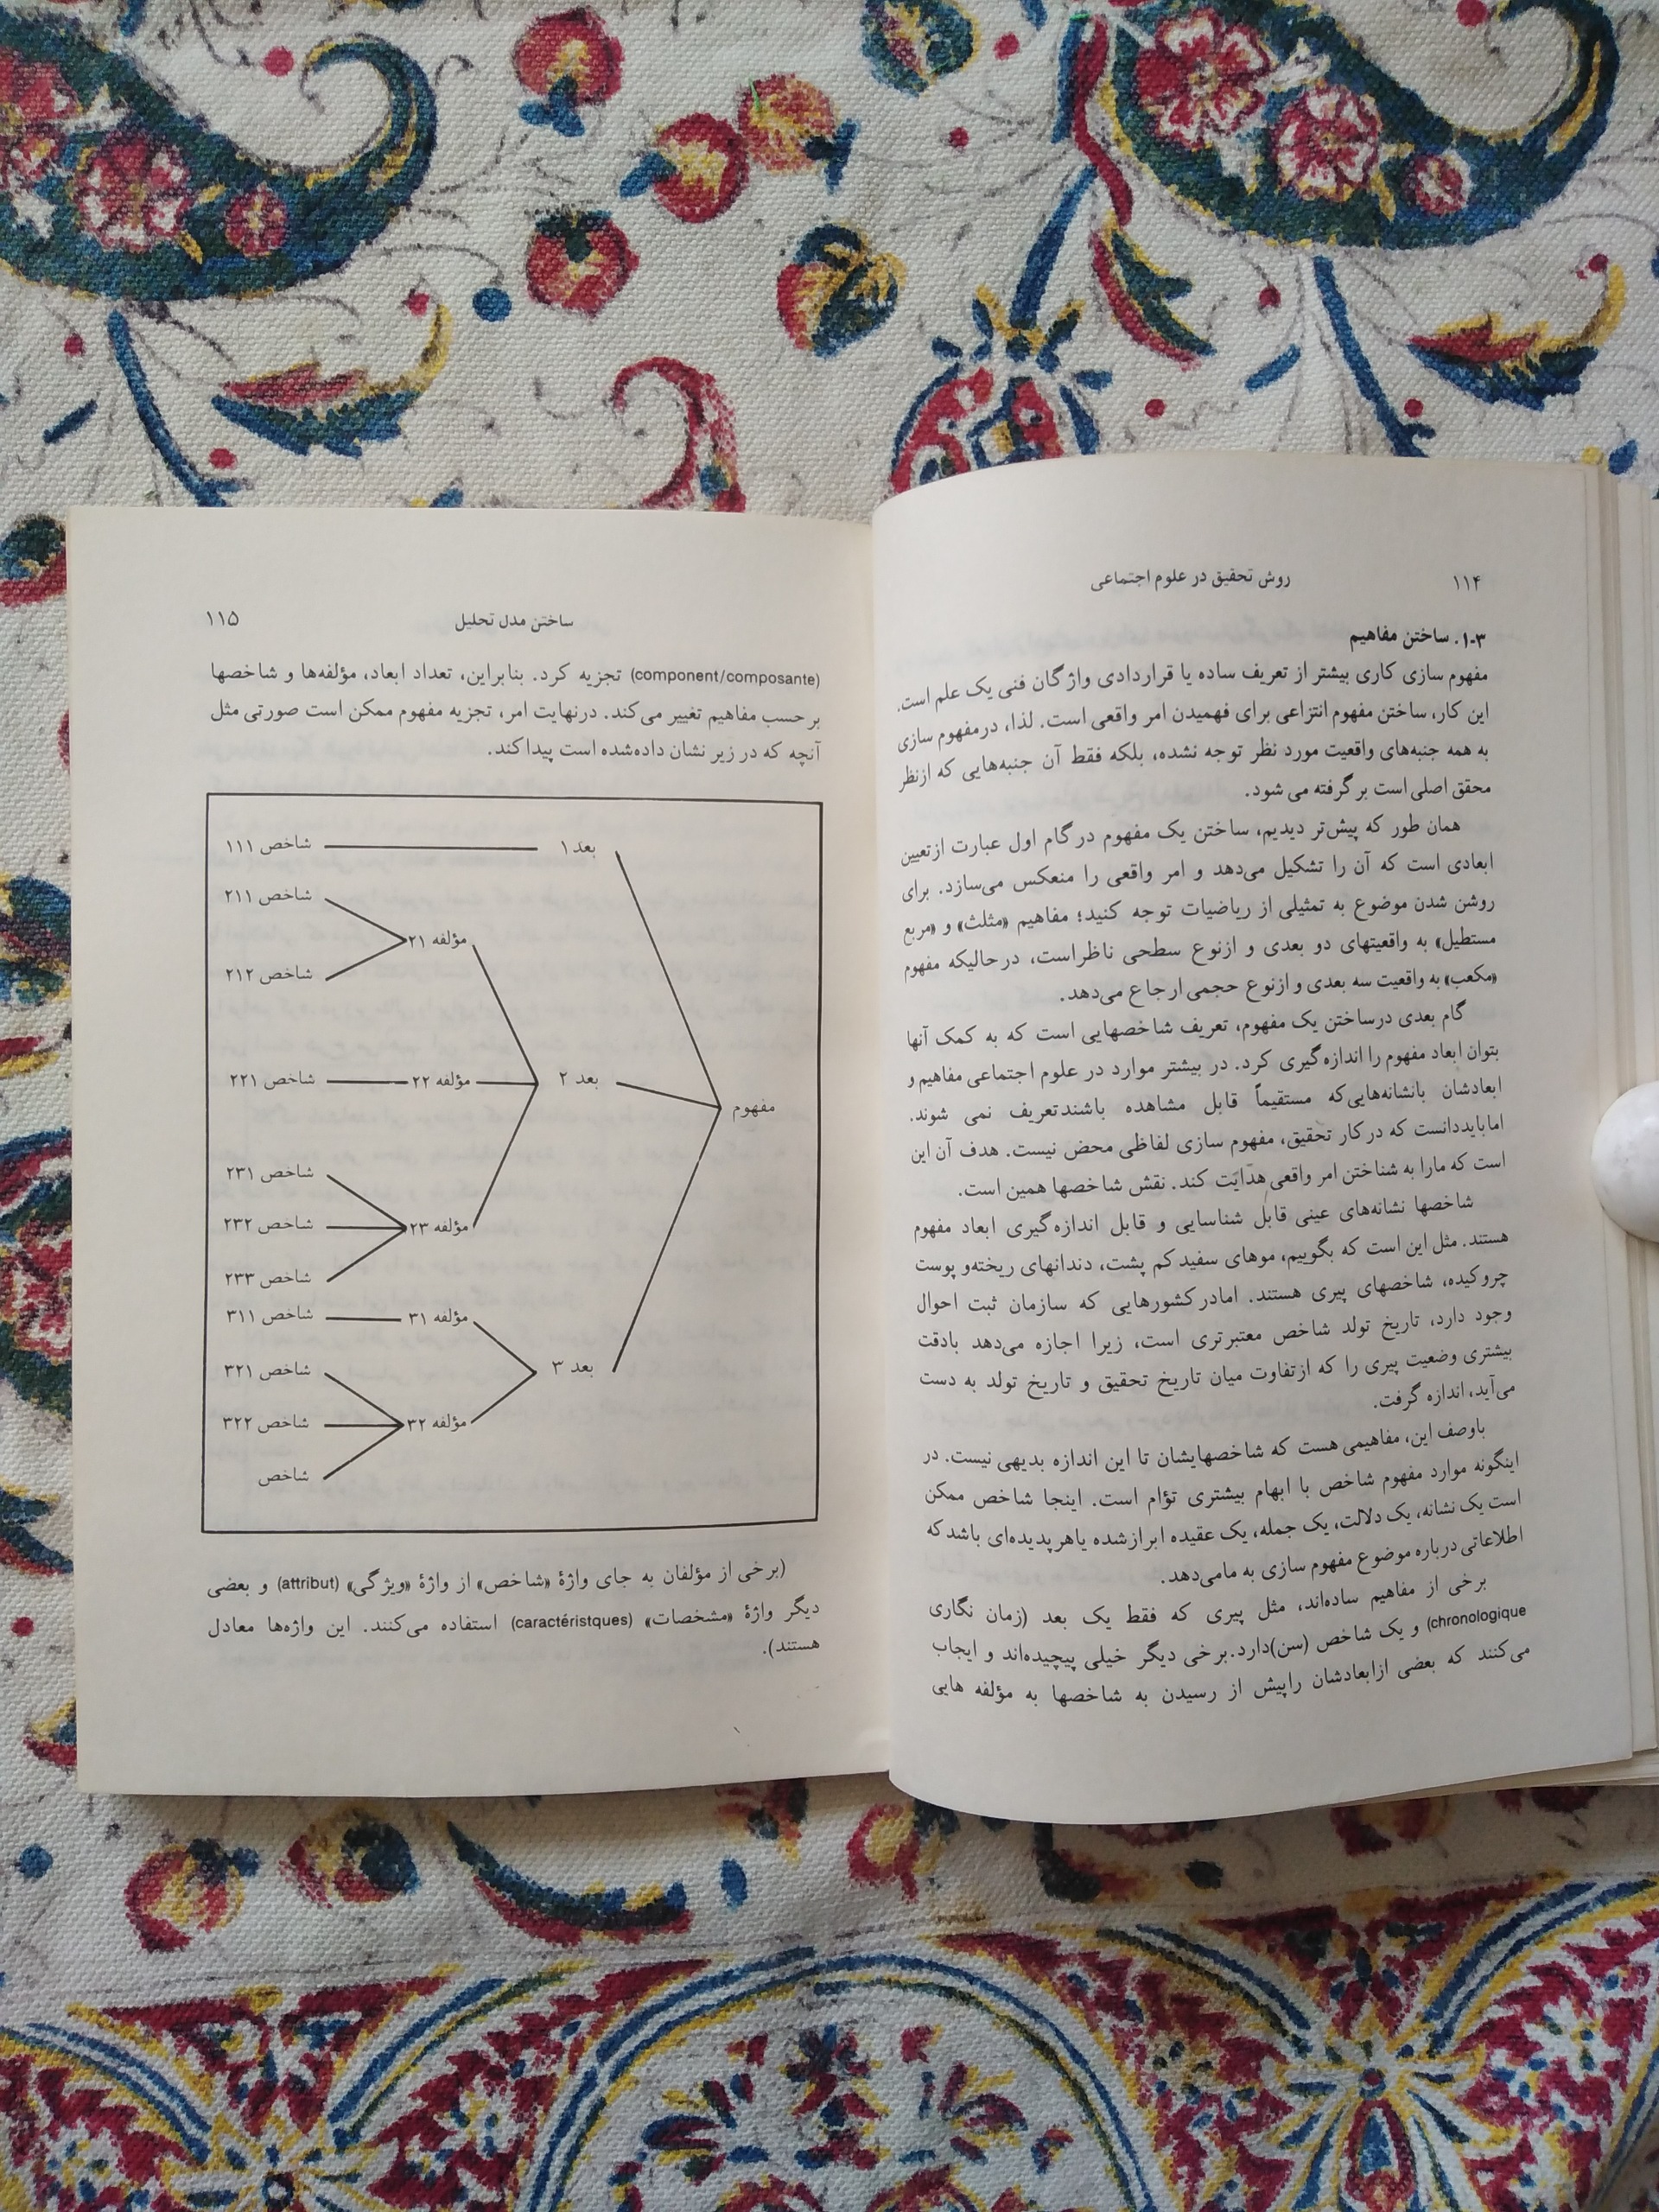 ۱۱۴
روش تحقیق در علوم اجتماعی
۱-۳. ساختن مفاهیم
مفهوم سازی کاری بیشتر از تعریف ساده یا قراردادی واژگان فنی یک علم است.
این کار، ساختن مفهوم انتزاعی برای فهمیدن امر واقعی است. لذا، درمفهوم سازی
به همه جنبه‌های واقعیت مورد نظر توجه نشده، بلکه فقط آن جنبه‌هایی که ازنظر
محقق اصلی است بر گرفته می شود.
همان طور که پیش‌تر دیدیم، ساختن یک مفهوم درگام اول عبارت ازتعیین
ابعادی است که آن را تشکیل می‌دهد و امر واقعی را منعکس می‌سازد. برای
روشن شدن موضوع به تمثیلی از ریاضیات توجه کنید؛ مفاهیم «مثلث» و «مربع
مستطیل» به واقعیتهای دو بعدی و ازنوع سطحی ناظراست، درحالیکه مفهوم
«مکعب» به واقعیت سه بعدی و ازنوع حجمی ارجاع می‌دهد.
گام بعدی درساختن یک مفهوم، تعریف شاخصهایی است که به کمک آنها
بتوان ابعاد مفهوم را اندازه‌گیری کرد. در بیشتر موارد در علوم اجتماعی مفاهیم و
ابعادشان بانشانه‌هایی‌که مستقیماً قابل مشاهده باشندتعریف نمی شوند.
امابایددانست که درکار تحقیق، مفهوم سازی لفاظی محض نیست. هدف آن این
است که مارا به شناختن امر واقعی هدایت کند. نقش شاخصها همین است.
شاخصها نشانه‌های عینی قابل شناسایی و قابل اندازه‌گیری ابعاد مفهوم
هستند. مثل این است که بگوییم، موهای سفیدکم پشت، دندانهای ریخته‌و پوست
چروکیده، شاخصهای پیری هستند. امادرکشورهایی که سازمان ثبت احوال
وجود دارد، تاریخ تولد شاخص معتبرتری است، زیرا اجازه می‌دهد بادقت
بیشتری وضعیت پیری را که ازتفاوت میان تاریخ تحقیق و تاریخ تولد به دست
می‌آید، اندازه گرفت.
باوصف این، مفاهیمی هست که شاخصهایشان تا این اندازه بدیهی نیست. در
اینگونه موارد مفهوم شاخص با ابهام بیشتری تؤام است. اینجا شاخص ممکن
است یک نشانه، یک دلالت، یک جمله، یک عقیده ابرازشده یاهرپدیده‌ای باشدکه
اطلاعاتی درباره موضوع مفهوم سازی به مامی‌دهد.
برخی از مفاهیم ساده‌اند، مثل پیری که فقط یک بعد (زمان نگاری
chronologique) و یک شاخص (سن)دارد.برخی دیگر خیلی پیچیده‌اند و ایجاب
می‌کنند که بعضی ازابعادشان راپیش از رسیدن به شاخصها به مؤلفه هایی
ساختن مدل تحلیل
۱۱۵
(component/composante) تجزیه کرد. بنابراین، تعداد ابعاد، مؤلفه‌ها و شاخصها
بر حسب مفاهیم تغییر می‌کند. درنهایت امر، تجزیه مفهوم ممکن است صورتی مثل
آنچه که در زیر نشان داده‌شده است پیداکند.
بعد ۱
شاخص ۱۱۱
شاخص ۲۱۱
مؤلفه ۲۱
شاخص ۲۱۲
مفهوم
بعد ۲
مؤلفه ۲۲
شاخص ۲۲۱
شاخص ۲۳۱
مؤلفه ۲۳
شاخص ۲۳۲
شاخص ۲۳۳
مؤلفه ۳۱
شاخص ۳۱۱
بعد ۳
شاخص ۳۲۱
مؤلفه ۳۲
شاخص ۳۲۲
شاخص
(برخی از مؤلفان به جای واژهٔ «شاخص» از واژهٔ «ویژگی» (attribut) و بعضی
دیگر واژهٔ «مشخصات» (caractéristques) استفاده می‌کنند. این واژه‌ها معادل
هستند).